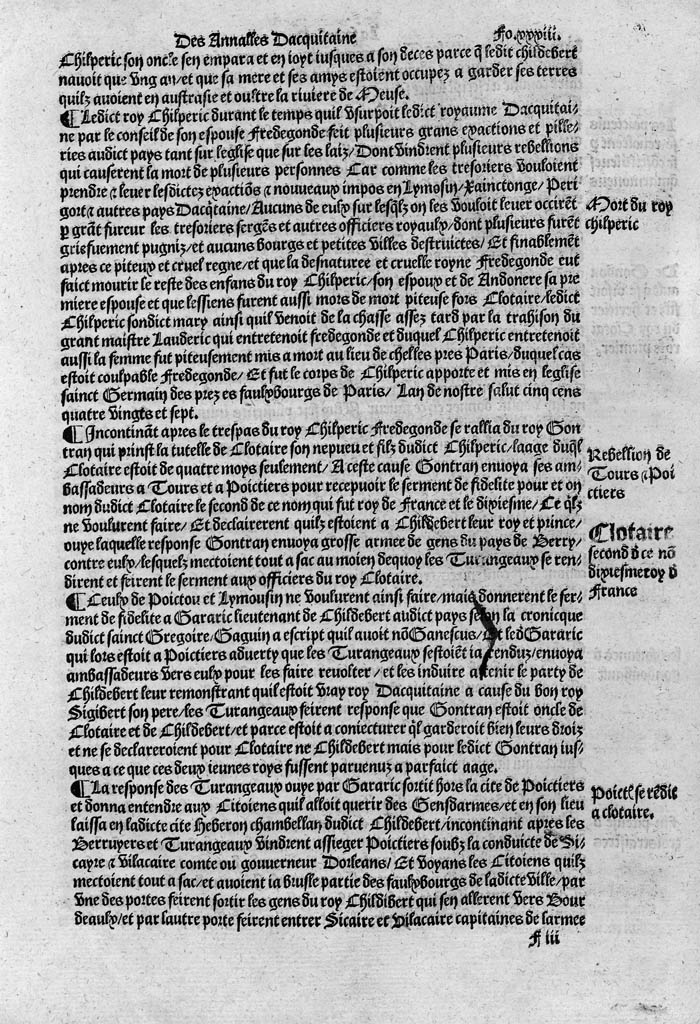 Des Annalles Dacquitaine
Fo.xxxiii.
Chilperic son oncle sen empara et en ioyt iusques a son deces parce q̃ ledit childebert
nauoit que vng an/et que sa mere et ses amys estoient occupez a garder ses terres
quilz auoient en austrasie et oultre la riuiere de Meuse.
¶Ledict roy Chilperic durant le temps quil vsurpoit ledict royaume Dacquitai-
ne par le conseil de son espouse Fredegonde feit plusieurs grans exactions et pille-
ries audict pays tant sur leglise que sur les laiz/Dont vindrent plusieurs rebellions
qui causerent la mort de plusieurs personnes Car comme les tresoriers vouloient
prendre ⁊ leuer lesdictez exactiõs ⁊ nouueaux impos en Lymosin/Xainctonge/Peri
gort ⁊ autres pays Dacq̃taine/Aucuns de eulx sur lesq̃lz on les vouloit leuer occirẽt
p grãt fureur les tresoriers sergẽs et autres officiers royaulx/dont plusieurs furẽt
griefuement pugniz/et aucuns bourgs et petites villes destruictes/Et finablemẽt
apres ce piteux et cruel regne/et que la desnaturee et cruelle royne Fredegonde eut
faict mourir le reste des enfans du roy Chilperic/son espoux et de Andonere sa pre
miere espouse et que lessiens furent aussi mors de mort piteuse fors Clotaire/ledict
Chilperic sondict mary ainsi quil venoit de la chasse assez tard par la trahison du
grant maistre Lauderic qui entretenoit fredegonde et duquel Chilperic entretenoit
aussi la femme fut piteusement mis a mort au lieu de chelles pres Paris/duquel cas
estoit coulpable Fredegonde/Et fut le corps de Chilperic apporte et mis en leglise
sainct Germain des prez es faulxbourgs de Paris/Lan de nostre salut cinq cens
quatre vingts et sept.
¶Incontinãt apres le trespas du roy Chilperic Fredegonde se rallia du roy Gon
tran qui prinst la tutelle de Clotaire son nepueu et filz dudict Chilperic/laage duq̃l
Clotaire estoit de quatre moys seulement/A ceste cause Gontran enuoya ses am-
bassadeurs a Tours et a Poictiers pour recepuoir le serment de fidelite pour et on
nom dudict Clotaire le second de ce nom qui fut roy de France et le dixiesme/Ce q̃lz
ne voulurent faire/Et declairerent quilz estoient a Childebert leur roy et prince/
ouye laquelle response Gontran enuoya grosse armee de gens du pays de Berry/
contre eulx/lesquelz mectoient tout a sac au moien dequoy les Turangeaux se ren-
dirent et feirent le serment aux officiers du roy Clotaire.
¶Ceulx de Poictou et Lymousin ne voulurent ainsi faire/mais donnerent le ser-
ment de fidelite a Gararic lieutenant de Childebert audict pays selon la cronicque
dudict sainct Gregoire/Gaguin a escript quil auoit nõ Ganescus/Et led̃ Gararic
qui lors estoit a Poictiers aduerty que les Turangeaux sestoiẽt ia renduz/enuoya
ambassadeurs vers eulx pour les faire reuolter/et les induire a tenir le party de
Childebert leur remonstrant quil estoit vray roy Dacquitaine a cause du bon roy
Sigibert son pere/les Turangeaux feirent response que Gontran estoit oncle de
Clotaire et de Childebert/et parce estoit a coniecturer q̃l garderoit bien leurs droiz
et ne se declareroient pour Clotaire ne Childebert mais pour ledict Gontran ius-
ques a ce que ces deux ieunes roys fussent paruenuz a parfaict aage.
¶La response des Turangeaux ouye par Gararic sortit hors la cite de Poictiers
et donna entendre aux Citoiens quil alloit querir des Gensdarmes/et en son lieu
laissa en ladicte cite Heberon chambellan dudict Childebert/incontinant apres les
Berruyers et Turangeaux vindrent assieger Poictiers soubz la conduicte de Si-
cayre ⁊ vilacaire comte ou gouuerneur Dorleans/Et voyans les Citoiens quilz
mectoient tout a sac/et auoient ia brusle partie des faulxbourgs de ladicte ville/par
vne des portes feirent sortir les gens du roy Childibert qui sen allerent vers Bour
deaulx/et par lautre porte feirent entrer Sicaire et Vilacaire capitaines de larmee
F iii
Mort du roy
chilperic
Rebellion de
Tours ⁊ Poi
ctiers
Clotaire
second d̃ ce nõ
dixiesme roy d̃
France
Poictẽ se rẽdẽt
a clotaire.